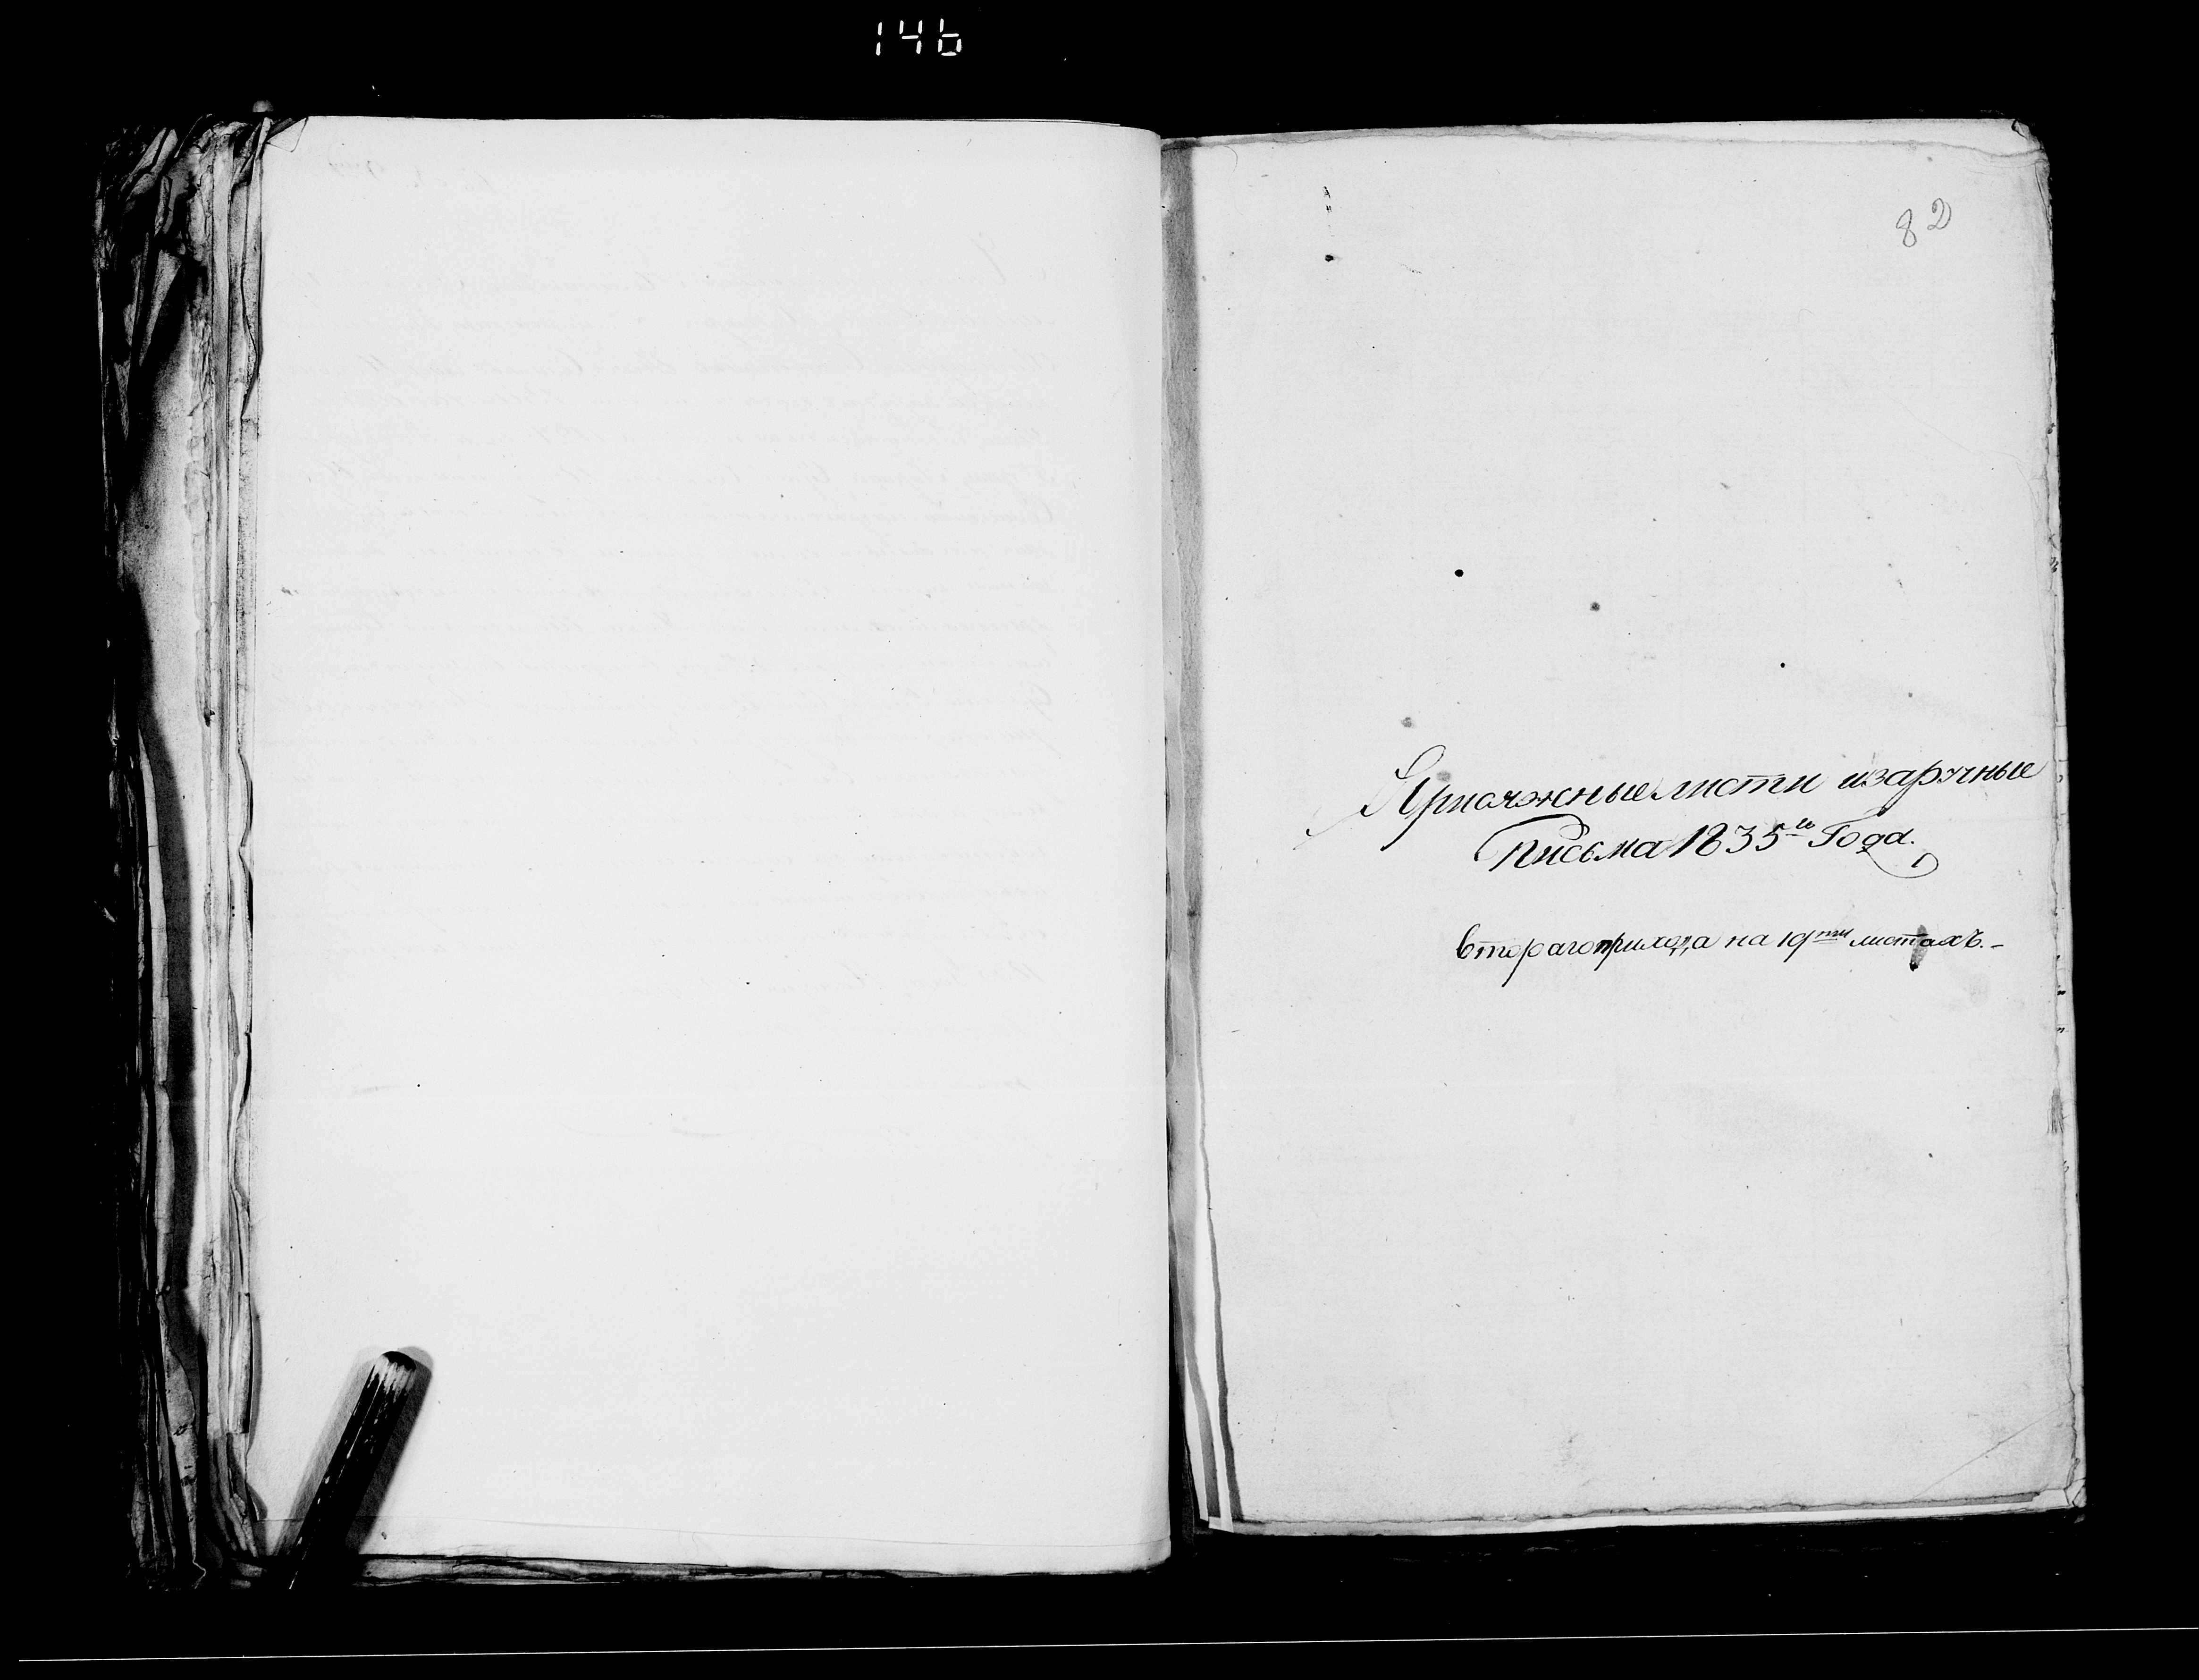 146
82
Присяжные листи изаручные
письма 1835го Года.
втораго прихода на 19ти листахъ.-